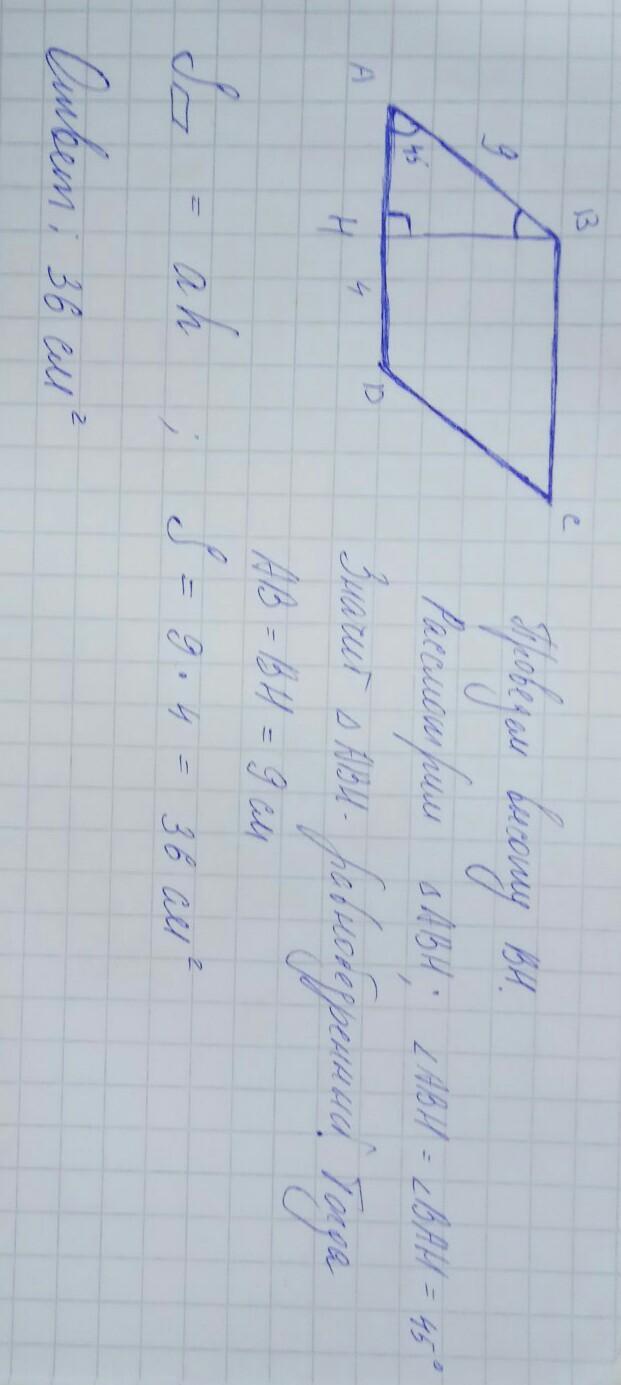 B
9
C
45°
A
H
4
D
Проведем высоту BH.
Рассмотрим ΔABH; ∠ABH = ∠BAH = 45°
Значит ΔABH - равнобедренный. Тогда
AB = BH = 9 см
S▱ = ah ; S = 9 · 4 = 36 см²
Ответ: 36 см²